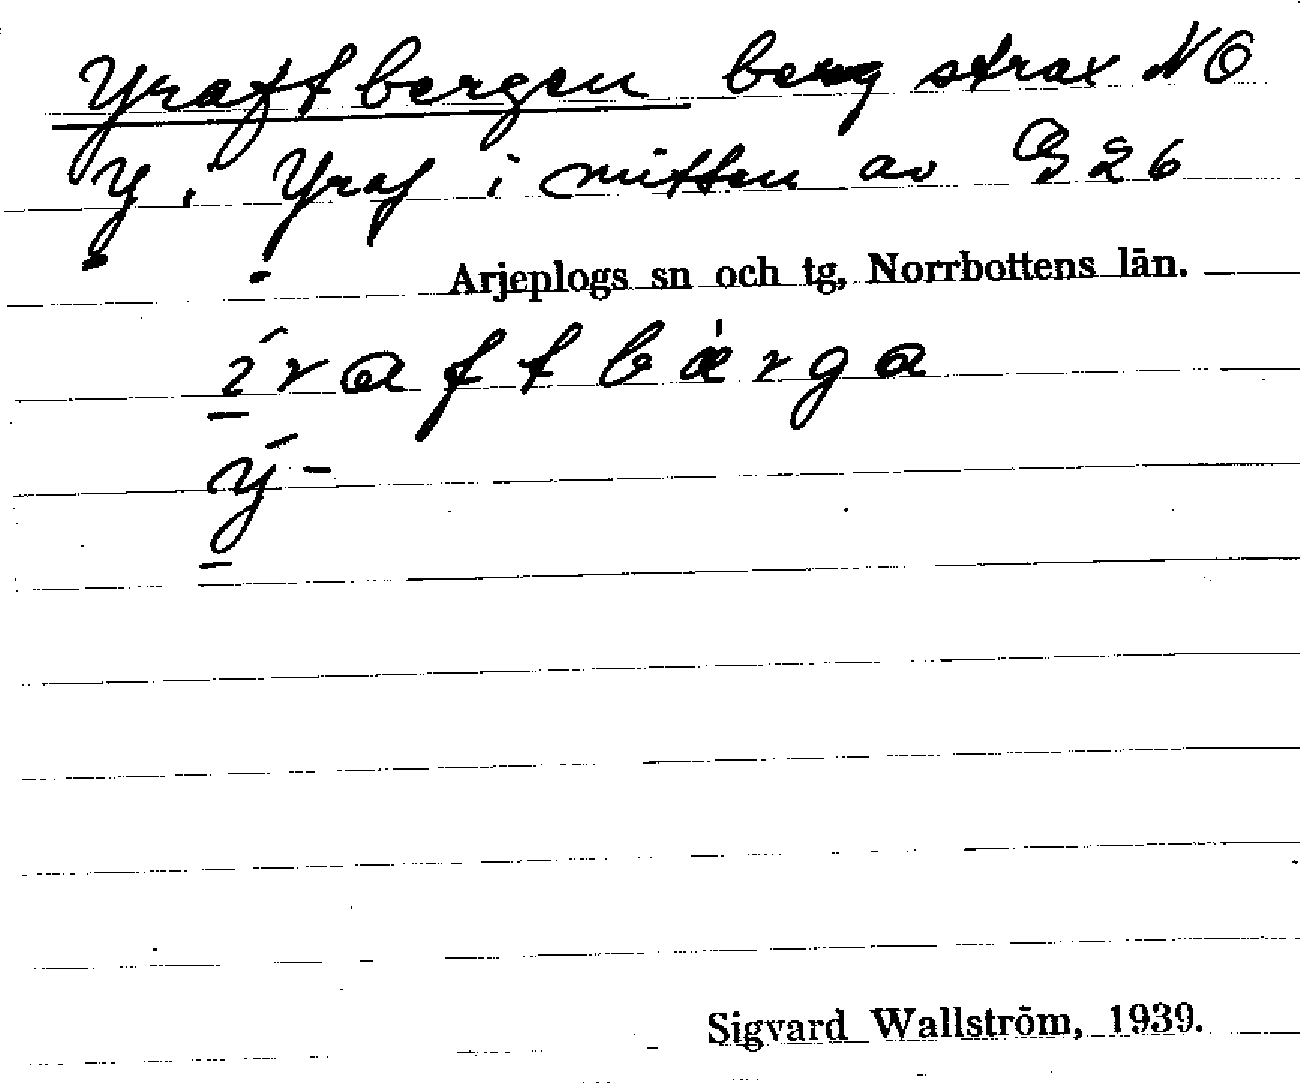 Yraftbergen berg strax NO
Y. i Yraf i mitten av G26
Arjeplogs sn och tg, Norrbottens län.
íraftbǽrga
ý-
Sigvard Wallström, 1939.